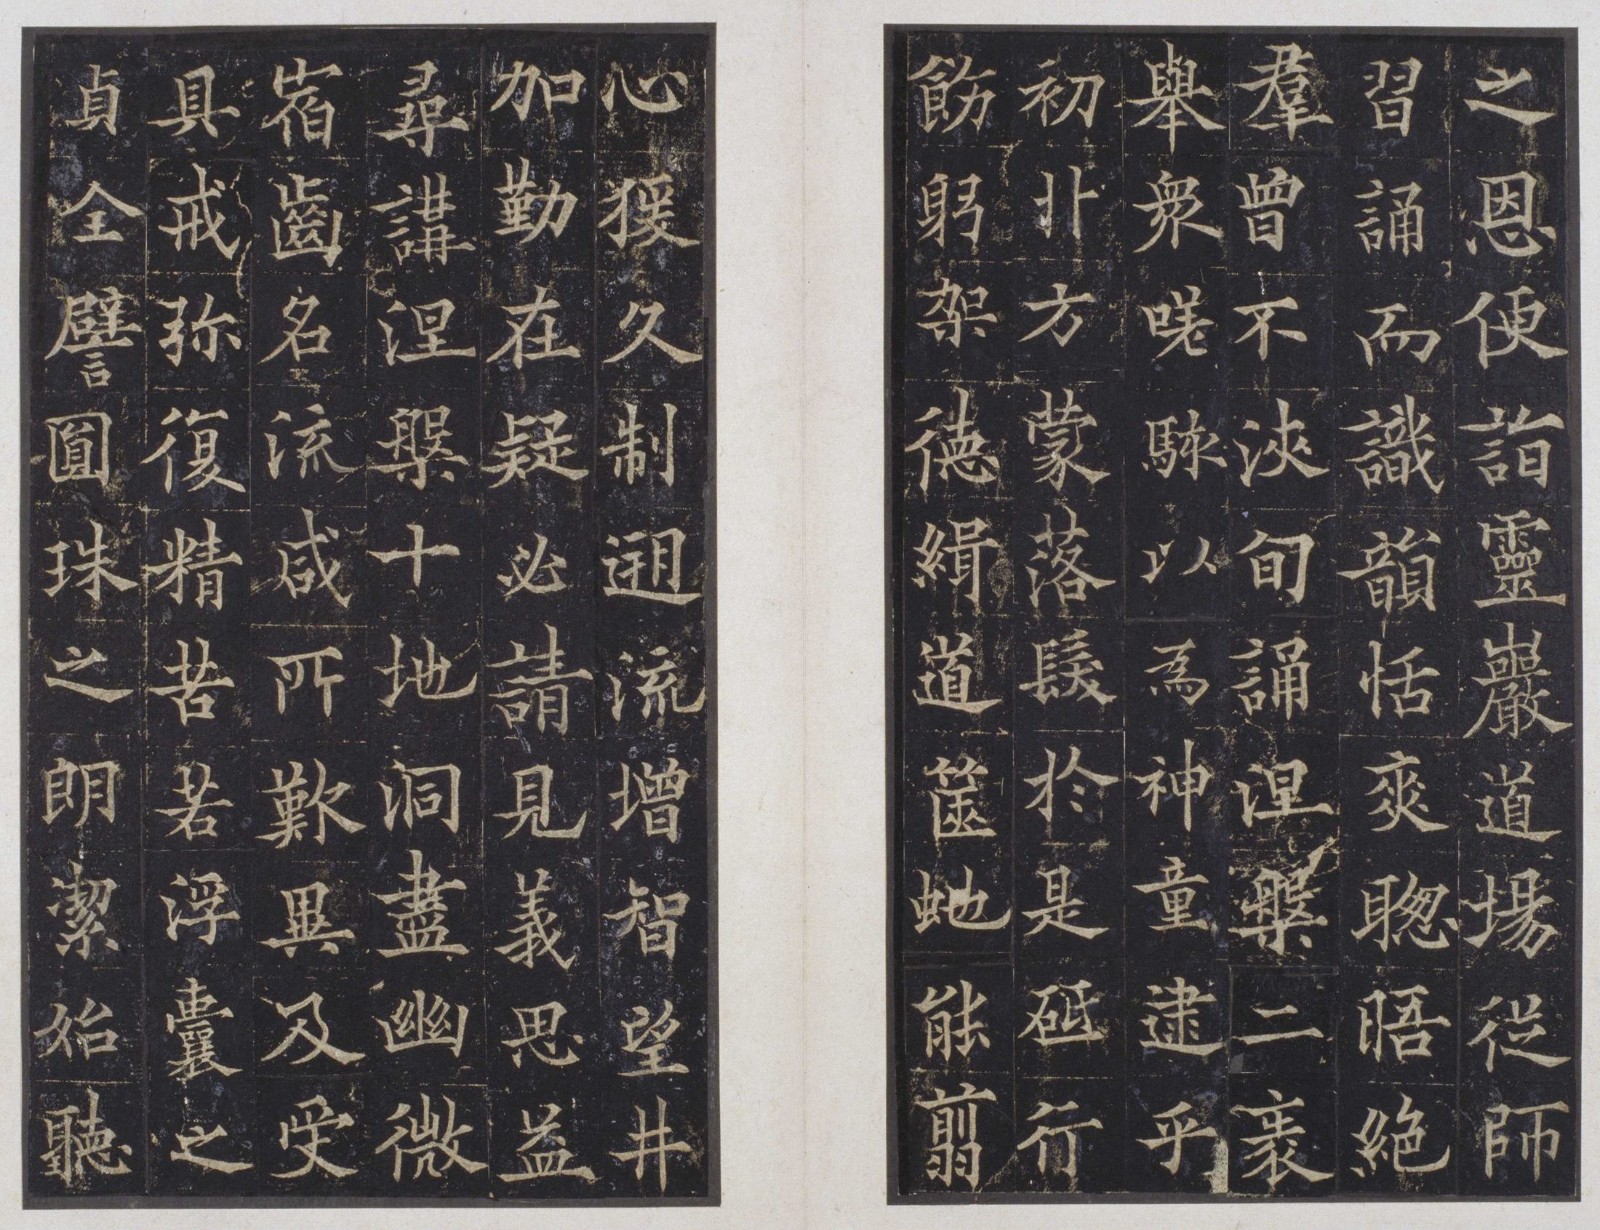 之恩便詣靈巖道場從師
習誦而識韻恬爽聰晤絕
羣曾不浹旬誦涅槃二袠
舉衆嗟駭以爲神童逮乎
初卝方蒙落髮於是砥行
飭躬架德緝道篋虵能翦
心猨久制迴流增智望井
加勤在疑必請見義思益
尋講涅槃十地洞盡幽微
宿齒名流咸所歎異及受
具戒弥復精苦若浮囊之
貞全譬圓珠之朗潔始聽